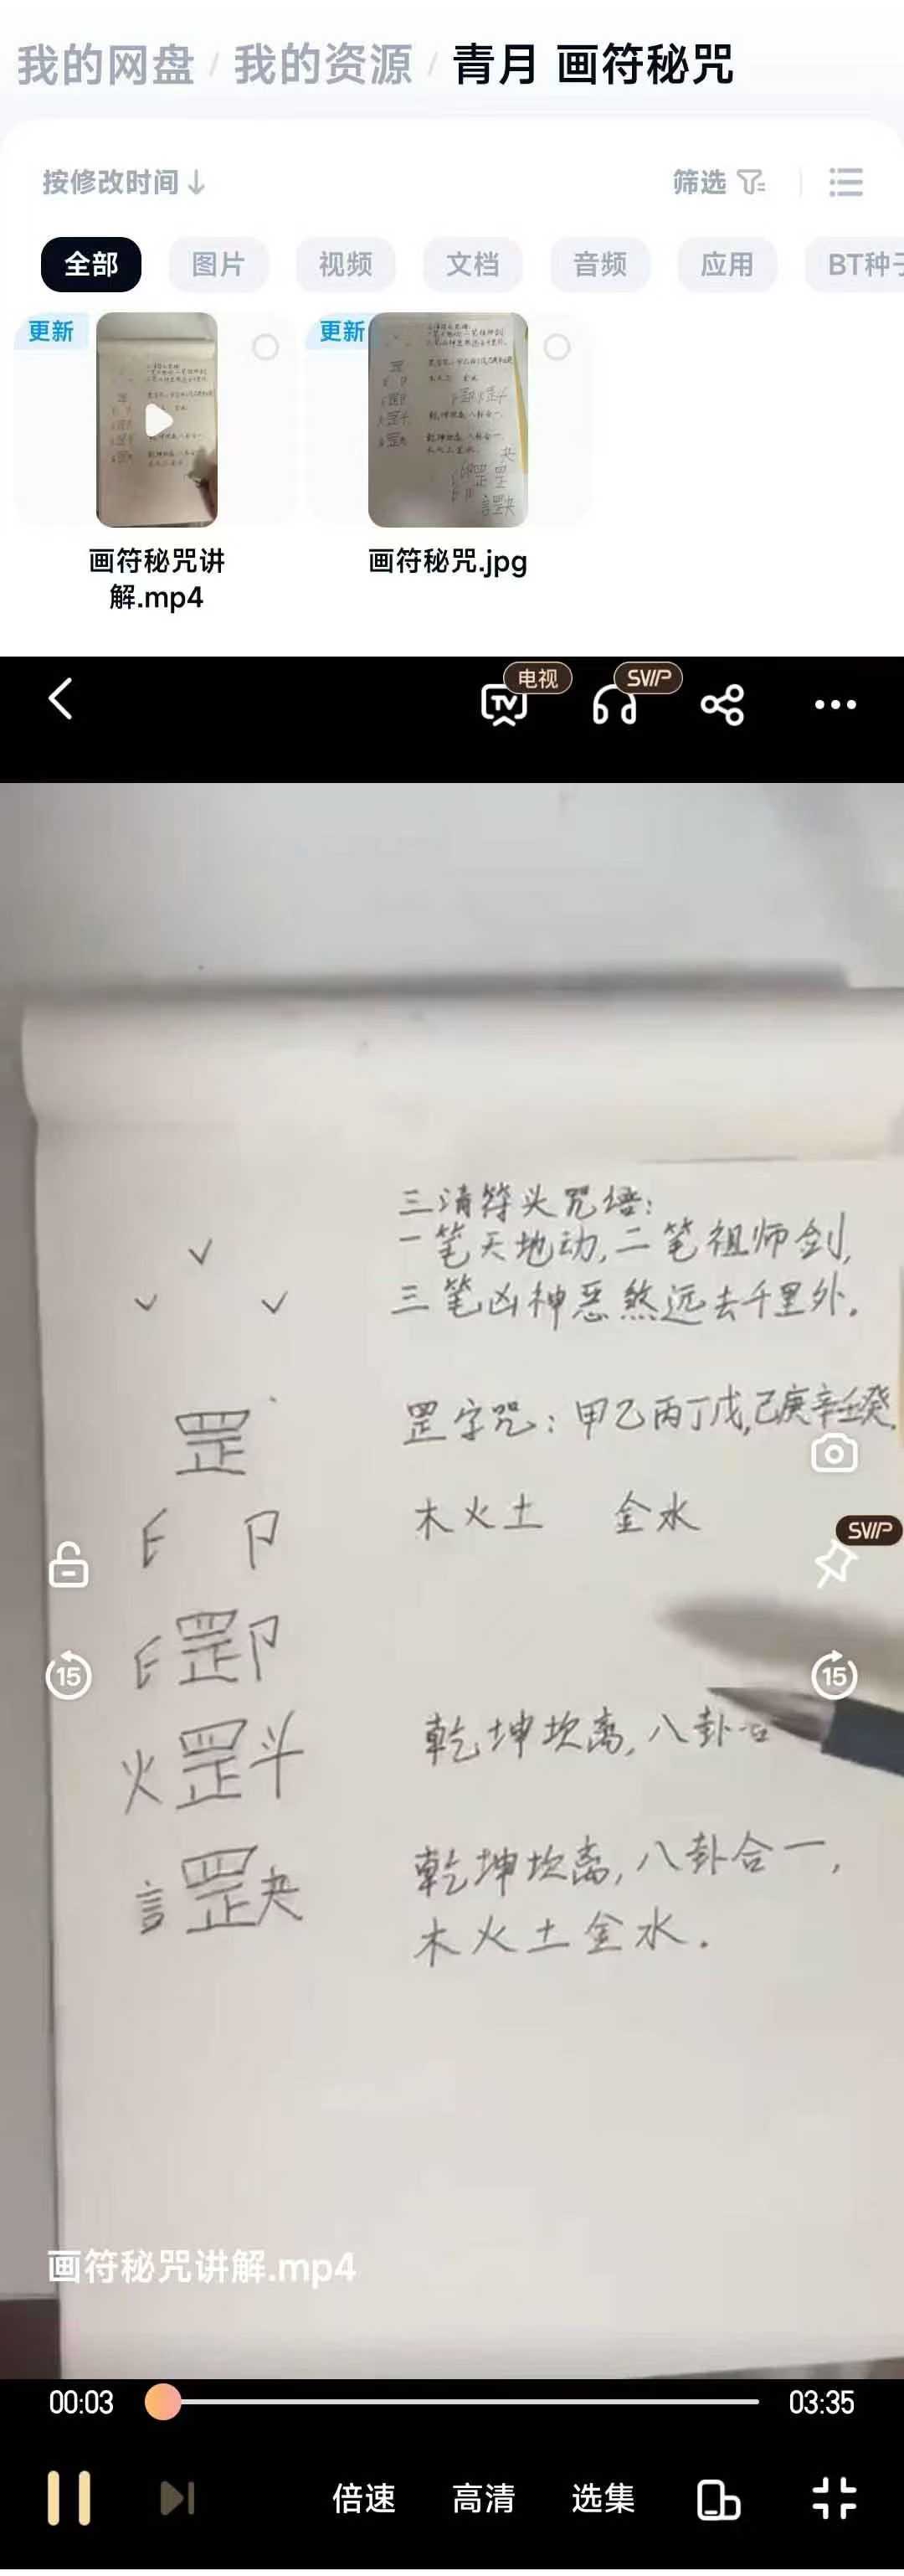 我的网盘 / 我的资源 / 青月 画符秘咒
按修改时间↓ 筛选
全部 图片 视频 文档 音频 应用 BT种子
更新 更新
画符秘咒讲
解.mp4
画符秘咒.jpg
电视 SVIP
TV
三清符头咒语:
一笔天地动,二笔祖师剑,
三笔凶神恶煞远去千里外.
罡 罡字咒: 甲乙丙丁戊,己庚辛壬癸.
木火土 金水
SVIP
罡卩
15 15
火罡斗 乾坤坎离,八卦合
言罡夬 乾坤坎离,八卦合一,
木火土金水.
画符秘咒讲解.mp4
00:03 03:35
倍速 高清 选集